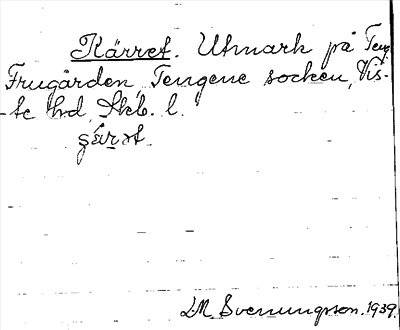 Kärret. Utmark på Teng
Frugården Tengene socken, Vis-
-te hd Skb. l.
L.M. Svenungsson. 1939.